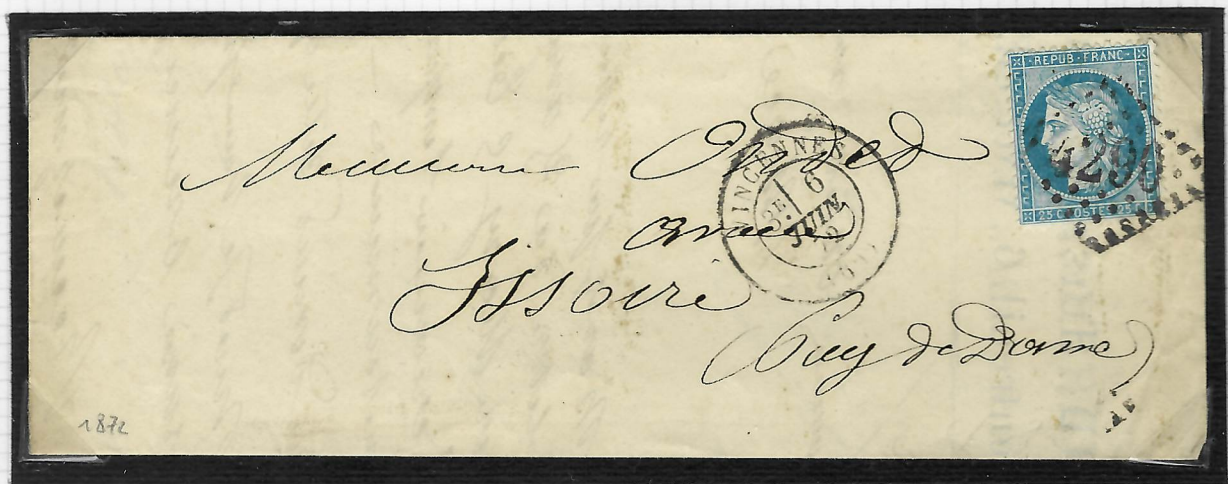 REPUB · FRANC ·
25 C POSTES 25
4299
VINCENNES
3E
6
JUIN
72
Monsieur
Issoire
(Puy de Dome)
1872